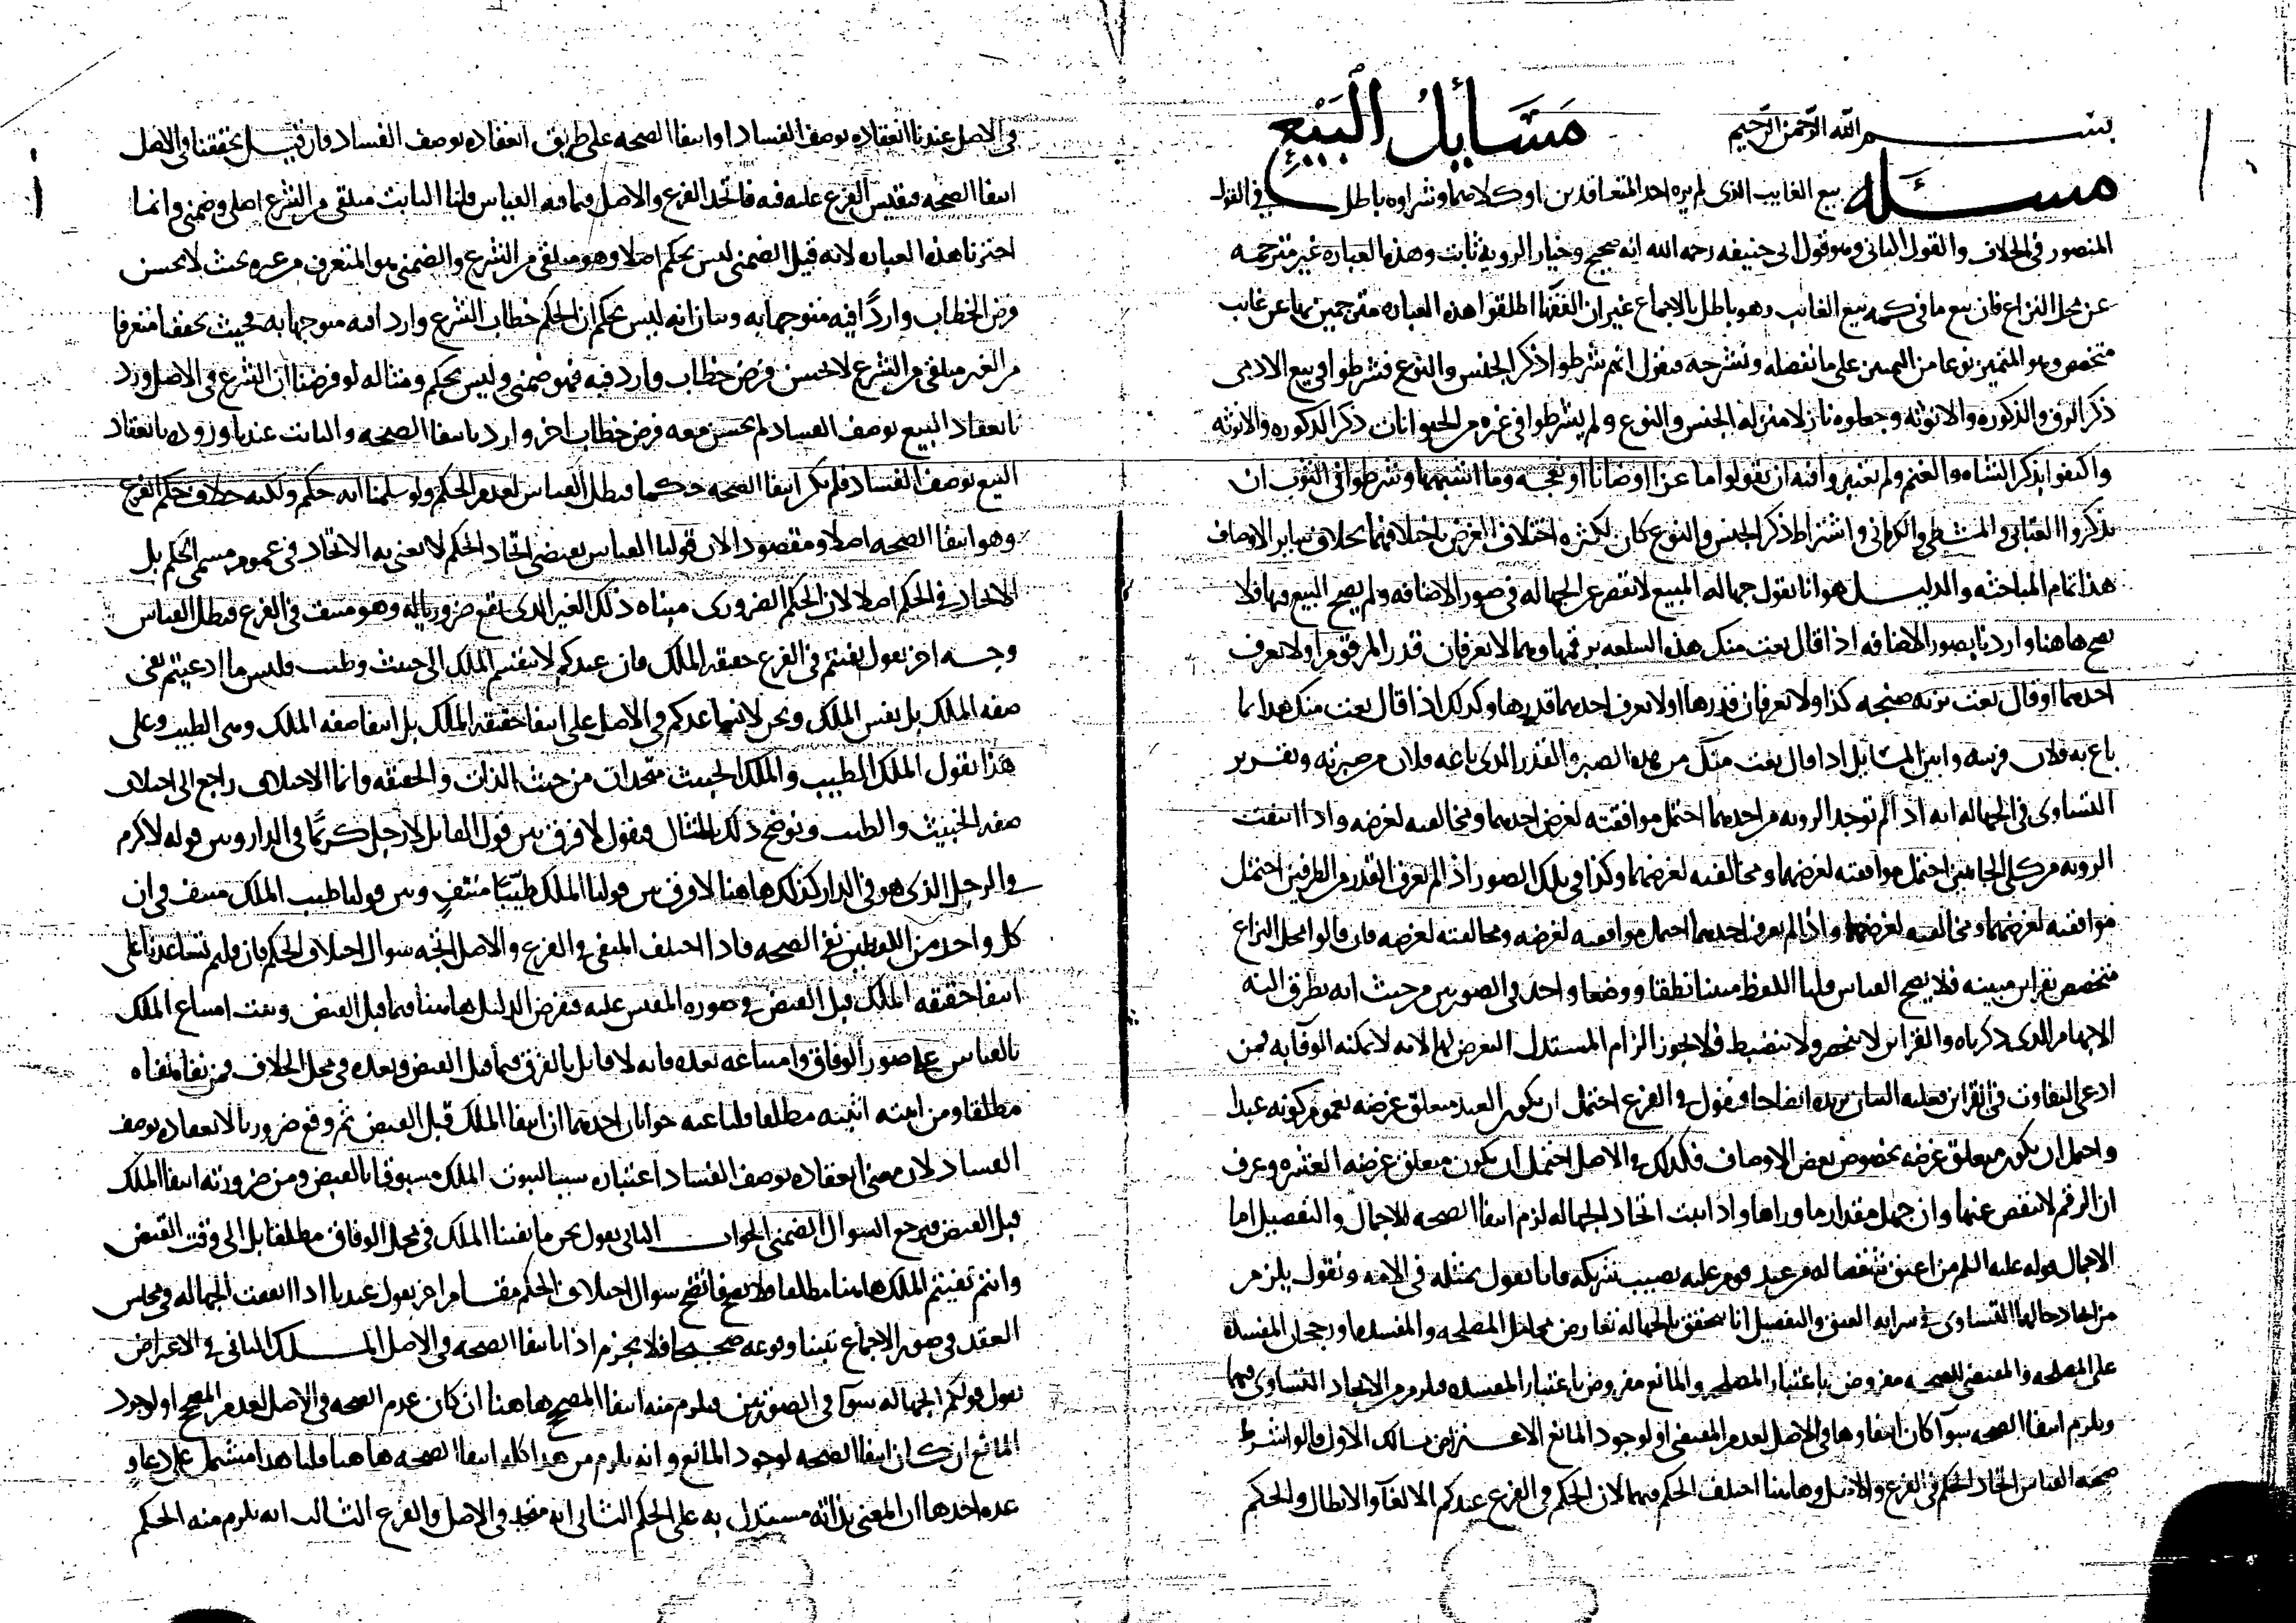 بسم الله الرحمن الرحيم
مسائل البيع
مسئلة بيع الغايب الذي لم يره احد المتعاقدين او كلاهما وشراوه باطل في القول
المنصور في الخلاف والقول الثاني وهو قول ابي حنيفه رحمه الله انه صحيح وخيار الروية ثابت وهذه العبارة غير مترجمه
عن محل النزاع فان بيع ما في كمه بيع الغائب وهو باطل بالاجماع غير ان الفقها اطلقوا هذه العباره مترجمين بها عن غايب
متخصص وهو المتميز نوعا من التمييز على ما نفصله ونشرحه فنقول انهم شرطوا ذكر الجنس والنوع فشرطوا في بيع الادمي
ذكر الرق والذكوره والانوثه وجعلوه نازلا منزله الجنس والنوع ولم يشترطوا في غيره من الحيوانات ذكر الذكوره والانوثه
واكتفوا بذكر الشاه والغنم ولم يعتبروا فيه ان يقولوا ماعزا او ضانا او نعجه وما اشبهها وشرطوا في الثوب ان
يذكروا العتابي والمشطي والكرماني واشتراط ذكر الجنس والنوع كان لكثره اختلاف الغرض باختلافهما بخلاف ساير الاوصاف
هذا تمام المباحثه والدليل هو انا نقول جهاله المبيع لا تقصر عن الجهاله في صور الاضافه ولم يصح البيع فيها فلا
يصح هاهنا واردنا بصور الاضافه اذا قال بعت منك هذه السلعه برقمها وهما لا يعرفان قدر المرقوم او لا يعرف
احدهما او قال بعت بزنه صنجه كذا ولا يعرفان قدرها او لا يعرف احدهما قدرها وكذلك اذا قال بعت منك هذا بما
باع به فلان فرسه وابين المسائل اذا قال بعت منك من هذه الصبر والقدر الذي باعه فلان من صبرته وتقرير
التساوي في الجهاله انه اذا لم توجد الرويه من احدهما احتمل موافقته لغرض احدهما ومخالفته لغرضه واذا انتفت
الرويه من كلي الجانبين احتمل موافقته لغرضهما ومخالفته لغرضهما وكذا في تلك الصور اذا لم يعرف القدر من الطرفين احتمل
موافقته لغرضهما ومخالفته لغرضهما واذا لم يعرف احدهما احتمل موافقته لغرضه ومخالفته لغرضه فان قالوا محل النزاع
متخصص بقراين مبينه فلا يصح القياس قلنا اللفظ مبينا نطقا ووضعا واحد في الصورتين من حيث انه تطرق اليه
الابهام الذي ذكرناه والقراين لا تنحصر ولا تنضبط فلا يجوز الزام المستدل التعرض لها لانه لا يمكنه الوفا به فمن
ادعى التفاوت في القراين فعليه البيان نزيده ايضاحا ونقول في الفرع احتمل ان يكون العبد متعلق غرضه بعموم كونه عبدا
واحتمل ان يكون متعلق غرضه بخصوص بعض الاوصاف فكذلك في الاصل احتمل ان يكون متعلق غرضه العشره وعرف
ان الرقم لا ينقص عنها وان جهل مقدار ما وراها واذا ثبت اتحاد الجهاله لزم انتفا الصحه للاجمال والتفصيل اما
الاجمال قوله عليه السلم من اعتق شقصا له من عبد قوم عليه نصيب شريكه فانا نقول بمثله في الامه ونقول يلزم
من اتحاد حالهما التساوي في سرايه العتق والتفصيل انا نتحقق بالجهاله تعارض محامل المصلحه والمفسده ورجحان المفسده
على المصلحه والمقتضي للصحه مفروض باعتبار المصلحه والمانع مفروض باعتبار المفسده فيلزم من الاتحاد التساوي فيهما
ويلزم انتفا الصحه سوآ كان انتفاوها في الاصل لعدم المقتضي او لوجود المانع الاعتراض سالك الاول قالوا شرط
صحه القياس اتحاد الحكم في الفرع والاصل وهاهنا اختلف الحكم فيهما لان الحكم في الفرع عندكم الالغآ والابطال والحكم
في الاصل عندنا انعقاده بوصف الفساد او انتفا الصحه على طريق انعقاده بوصف الفساد فان قيل تحققنا في الاصل
انتفا الصحه فنقيس الفرع عليه فيه فاتحد الفرع والاصل فيما فيه القياس قلنا الثابت متلقى من الشرع اصلي وضمني وانما
اخترنا هذه العباره لانه قيل الضمني ليس بحكم اصلا وهو متلقى من الشرع والضمني هو المتعرف من غيره بحيث لا يحسن
فرض الخطاب واردا فيه متوجها به وبيان انه ليس بحكم ان الحكم خطاب الشرع وارد فيه متوجها به فحيث تحققنا متعرفا
من الغير متلقى من الشرع لا يحسن فرض خطاب وارد فيه فهو ضمني وليس بحكم ومثاله لو فرضنا ان الشرع في الاصل ورد
بانعقاد البيع بوصف الفساد لم يحسن معه فرض خطاب اخر وارد بانتفا الصحه والثابت عندنا وروده بانعقاد
البيع بوصف الفساد فلم يكن انتفا الصحه حكما فبطل القياس لعدم الحكم ولو سلمنا انه حكم ولكنه خلاف حكم الفرع
وهو انتفا الصحه اصلا ومقصودا لان قولنا القياس يقتضي اتحاد الحكم لا نعني به الاتحاد في عموم مسمى الحكم بل
الاتحاد في الحكم اصلا لان الحكم الضروري مبناه ذلك الغير الذي يقع ضروريا له وهو منتف في الفرع فبطل القياس
وجه اخر نقول نفيتم في الفرع حقيقه الملك فان عندكم لا ينقسم الملك الى خبيث وطيب فليس ما ادعيتم نفي
صفه الملك بل نفس الملك ونحن لا نساعدكم في الاصل على انتفا حقيقه الملك بل انتفا صفه الملك وهي الطيب وعلى
هذا نقول الملك الطيب والملك الخبيث متحدان من حيث الذات والحقيقه وانما الاختلاف راجع الى اختلاف
صفه الخبيث والطيب ونوضح ذلك بالمثال فنقول لا فرق بين قول القائل لا رجل كريما في الدار وبين قوله لا كرم
في الرجل الذي هو في الدار كذلك هاهنا لا فرق بين قولنا الملك طيبا منتف وبين قولنا طيب الملك منتف في ان
كل واحد من اللفظين نفي الصحه فاذا اختلف المنفي في الفرع والاصل اتجه سوال اختلاف الحكم فان قلتم نساعدنا على
انتفا حقيقه الملك قبل القبض في صوره المقيس عليه فنفرض الدليل هاهنا فيما قبل القبض ويثبت امتناع الملك
بالقياس على صور الوفاق وامتناعه بعده فانه لا قائل بالفرق فيما قبل القبض وبعده في محل الخلاف فمن نفاه نفاه
مطلقا ومن اثبته اثبته مطلقا قلنا عنه جوابان احدهما ان انتفا الملك قبل القبض ثم وقع ضروريا لانعقاده بوصف
الفساد لان معنى انعقاده بوصف الفساد اعتباره سببا لثبوت الملك مسبوقا بالقبض ومن ضرورته انتفا الملك
قبل القبض فيرجع السوال الضمني الجواب الثاني نقول نحن ما نفينا الملك في محل الوفاق مطلقا بل الى وقت القبض
وانتم نفيتم الملك هاهنا مطلقا فاتضح سوال اختلاف الحكم مقام اخر نقول عندنا اذا انتفت الجهاله في مجلس
العقد في صور الاجماع تبينا وقوعه صحيحا فلا نجزم اذا بانتفا الصحه في الاصل المسلك الثاني في الاعتراض
نقول قولكم الجهاله سوآ في الصورتين فيلزم منه انتفا المصحح هاهنا ان كان عدم الصحه في الاصل لعدم المصحح او لوجود
المانع ان كان انتفا الصحه لوجود المانع وانه يلزم من هذا كله انتفا الصحه هاهنا قلنا هذا مشتمل على دعاو
عده احدها ان المعنى بذاته مستدل به على الحكم الثاني انه متحد في الاصل والفرع الثالث انه يلزم منه الحكم